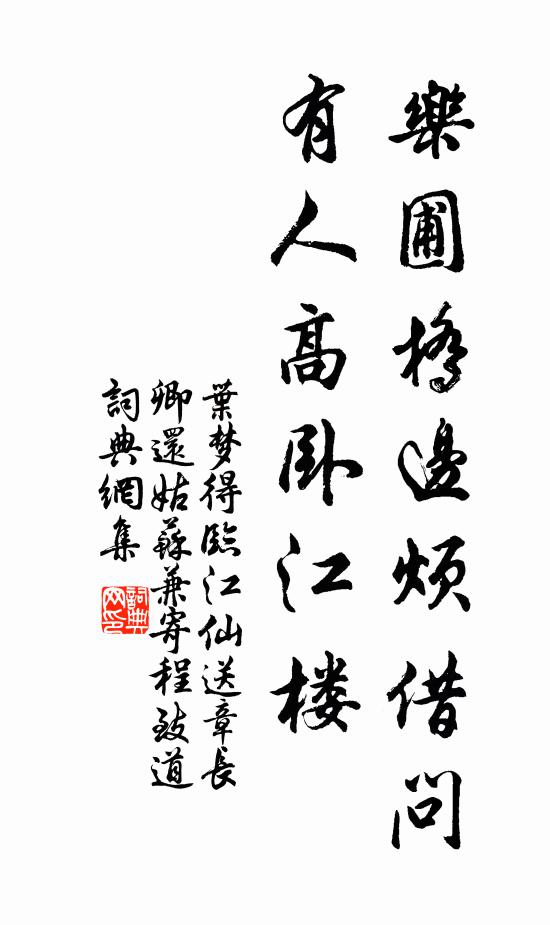 樂圃橋邊煩借問
有人高卧江楼
葉梦得臨江仙送章長
卿還姑蘇兼寄程致道
詞典網集
詞典
网印